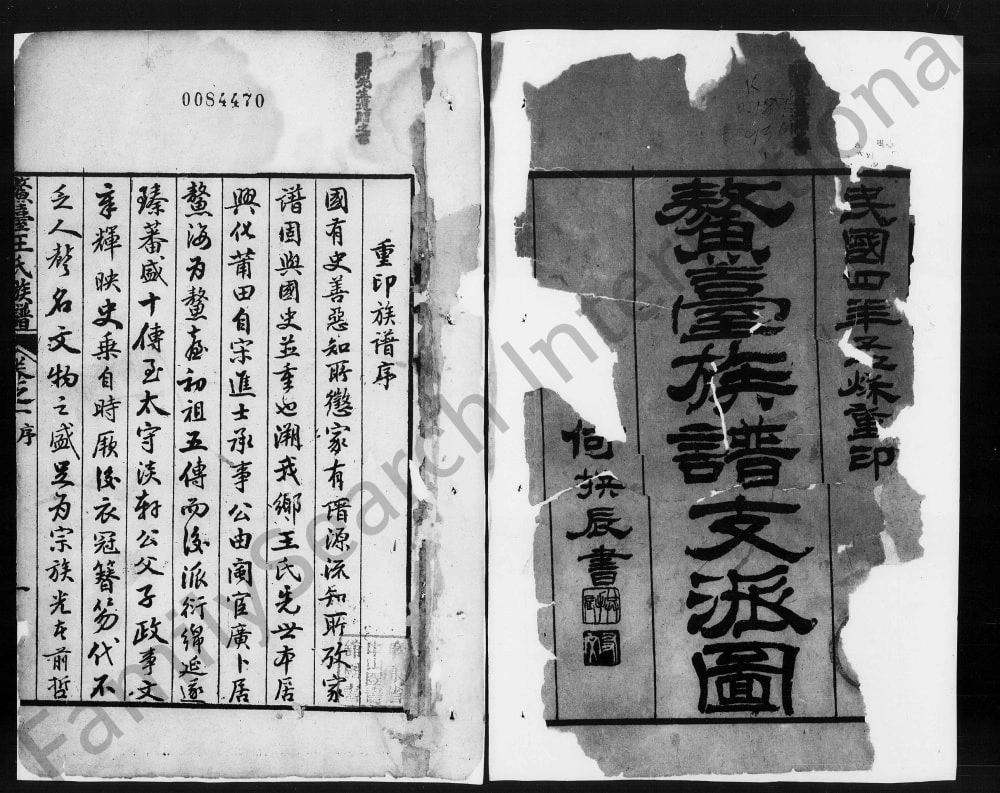 民國四年乙卯秌重印
鰲臺族譜支派圖
何拱辰書
0084470
重印族谱序
國有史善惡知所懲家有譜源流知所攷家
譜固與國史並重也溯我鄉王氏先世本居
興化莆田自宋進士承事公由閩宦廣卜居
鰲海为鰲臺初祖五傳而後派衍綿延遂
臻蕃盛十傳至太守淡軒公父子政事文
章輝映史乘自時厥後衣冠簪笏代不
乏人聲名文物之盛足为宗族光在前哲
鰲臺王氏族譜
卷之一序
一
FamilySearch International